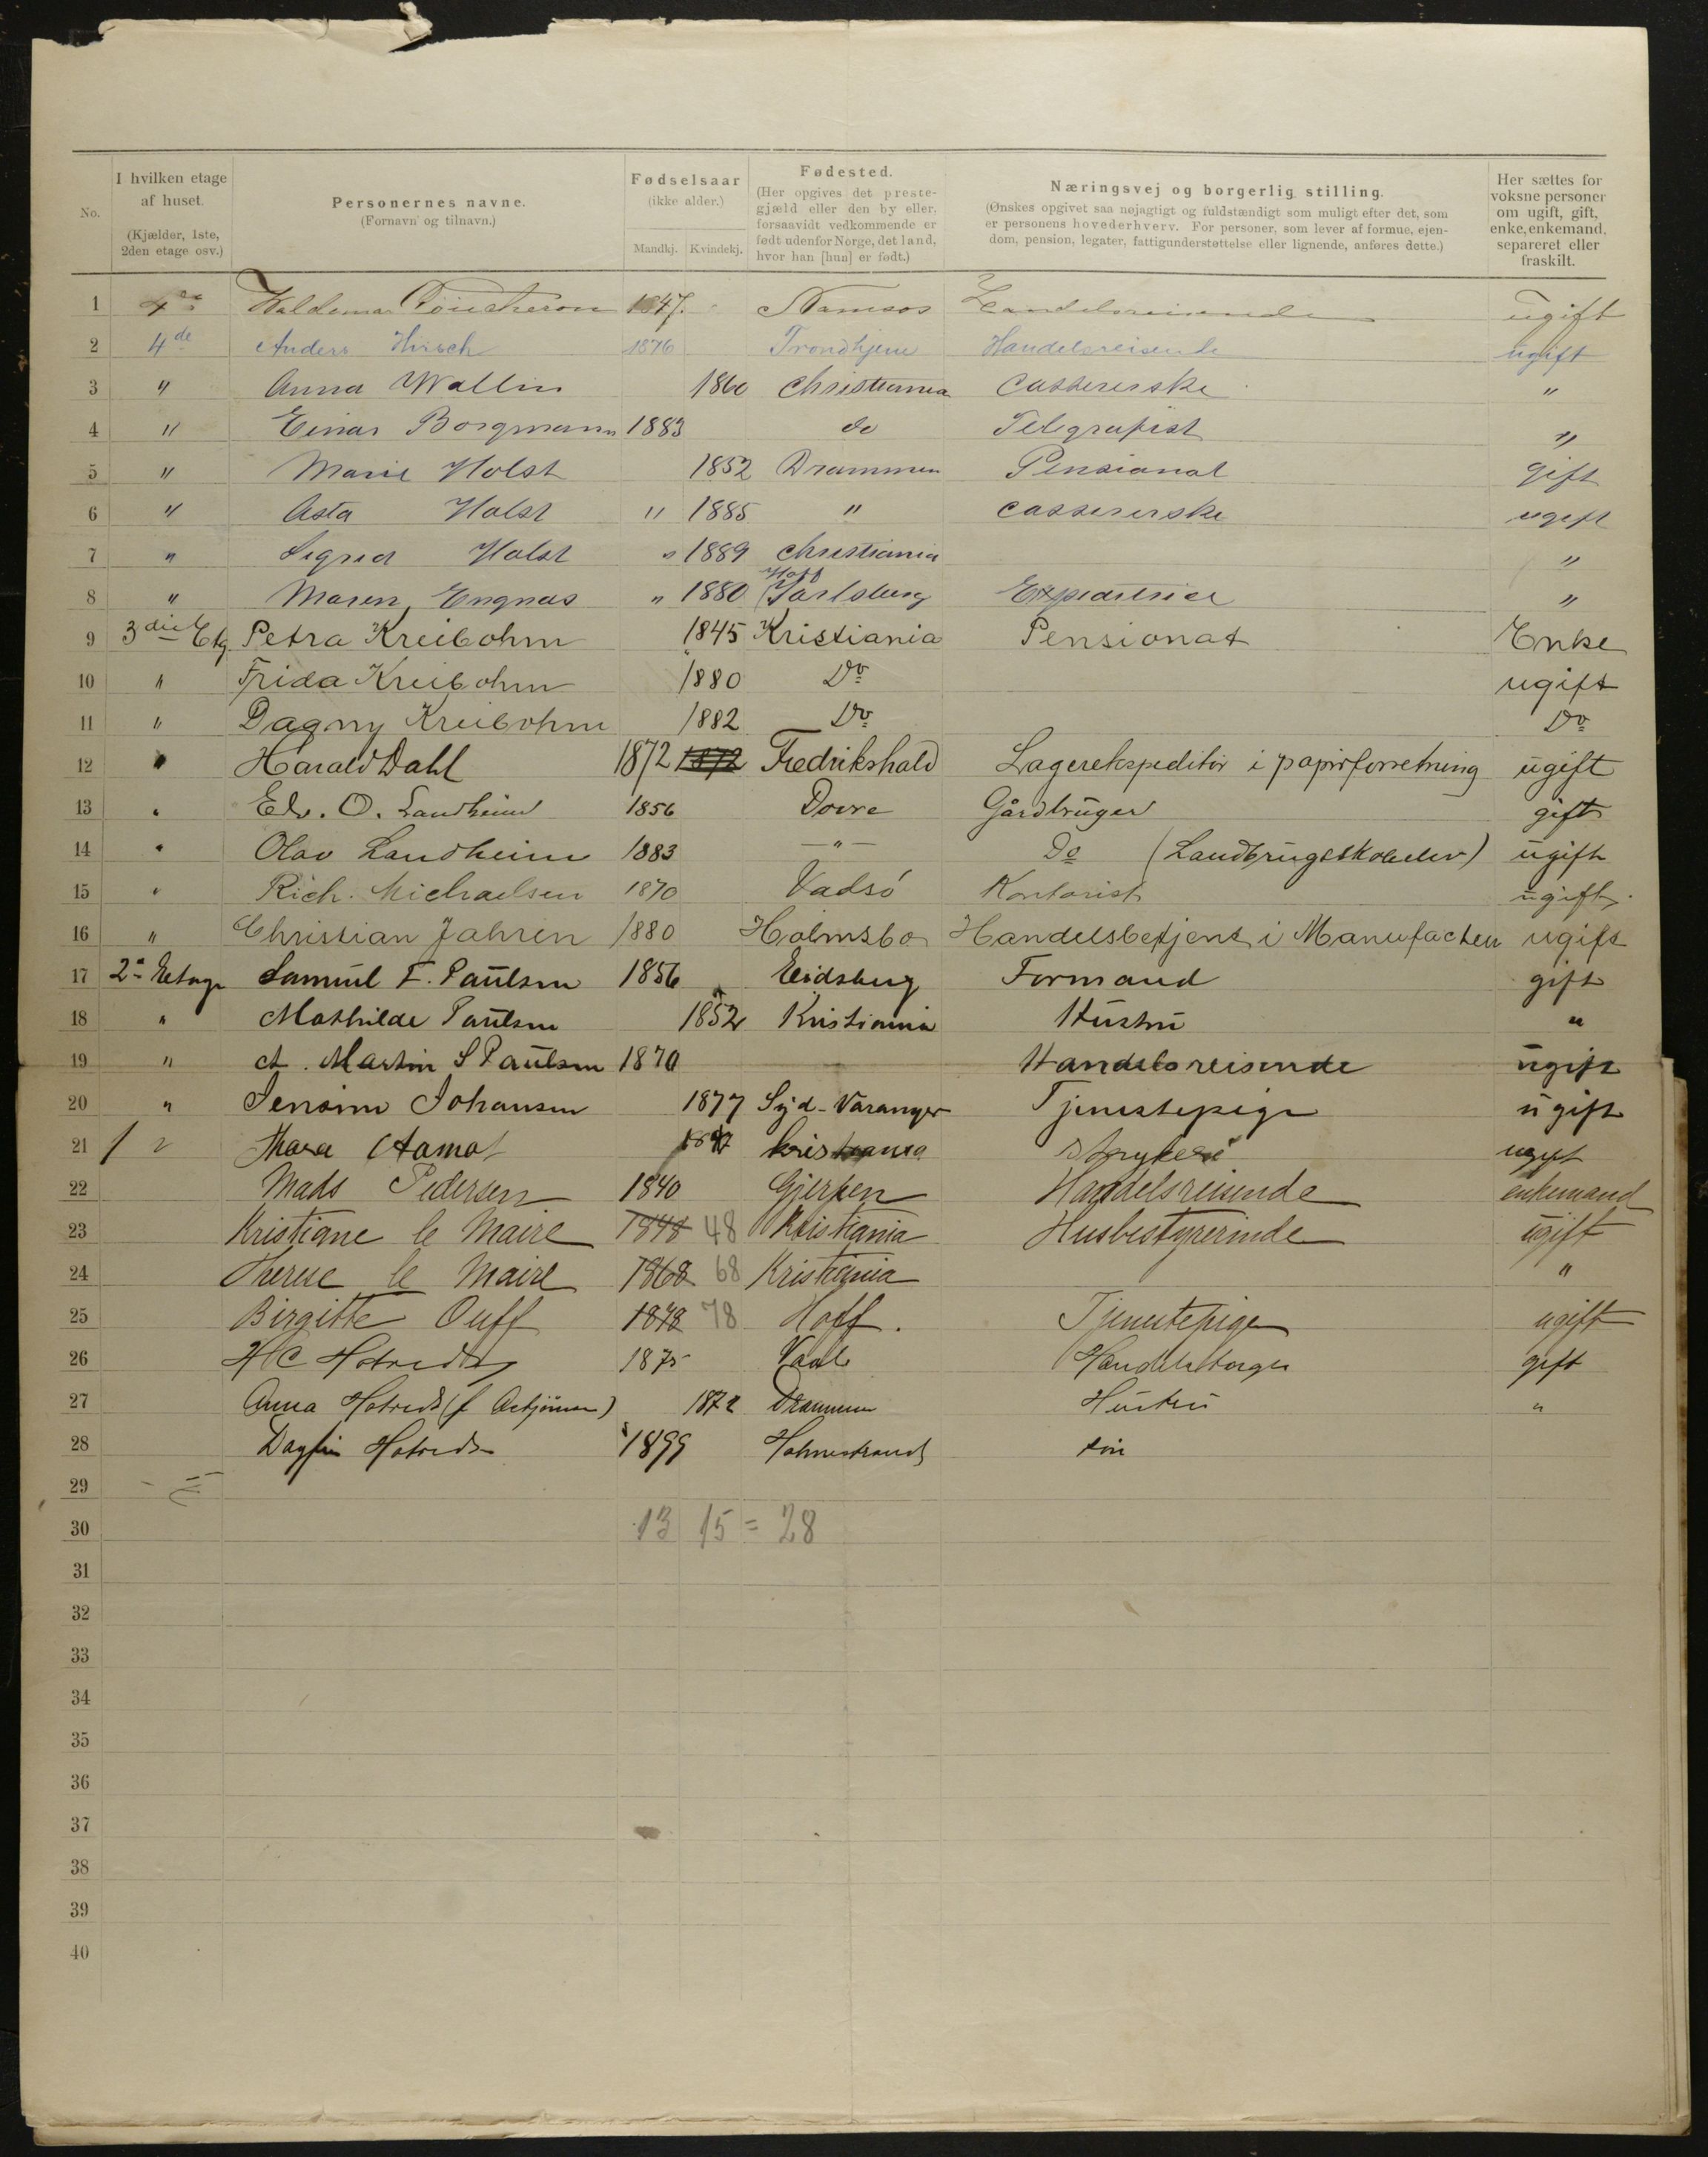 No.
I hvilken etage af huset. (Kjælder, 1ste, 2den etage osv.)
Personernes navne. (Fornavn og tilnavn.)
Fødselsaar (ikke alder.) Mandkj. Kvindekj.
Fødested. (Her opgives det prestegjæld eller den by eller, forsaavidt vedkommende er født udenfor Norge, det land, hvor han [hun] er født.)
Næringsvej og borgerlig stilling. (Ønskes opgivet saa nøjagtigt og fuldstændigt som muligt efter det, som er personens hovederhverv. For personer, som lever af formue, ejendom, pension, legater, fattigunderstøttelse eller lignende, anføres dette.)
Her sættes for voksne personer om ugift, gift, enke, enkemand, separeret eller fraskilt.
1 4de Valdemar 1847. Namsos Handelsreisende ugift
2 4de Anders Hirsch 1876 Trondhjem Handelsreisende ugift
3 " Anna Wallin 1860 Christiania Cassererske "
4 " Einar Borgmann 1883 do Telegrafist "
5 " Marie Holst 1852 Drammen Pensionat gift
6 " Asta Holst " 1885 " Cassererske ugift
7 " Sigrid Holst " 1889 Christiania "
8 " Maren Engnæs " 1880 Hoff Jarlsberg "
9 3die Etg Petra Kreibohm 1845 Kristiania Pensionat Enke
10 " Frida Kreibohm 1880 Do ugift
11 " Dagny Kreibohm 1882 Do Do
12 " Harald Dahl 1872 1872 Fredrikshald Lagerekspeditör i papirforretning ugift
13 " Edv. O. Landheim 1856 Dovre Gårdbruger gift
14 " Olav Landheim 1883 —"— Do (Landbrugsskoleelev) ugift
15 " Rich. Michaelsen 1870 Vadsö Kontorist ugift.
16 " Christian Jahren 1880 Holmsbo Handelsbetjent i Manufactur ugift
17 2n Etage Samuel F. Paulsen 1856 Eidsberg Formand gift
18 " Mathilde Paulsen 1852 Kristiania Hustru "
19 " A. Martin S Paulsen 1870 Handelsreisende ugift
20 " Jensine Johansen 1877 Syd-Varanger Tjenestepige ugift
21 Kristiania ugift
22 Mads Pedersen 1840 Gjerpen Handelsreisende enkemand
23 Kristiane le Maire 1848 48 Kristiania Husbestyrerinde ugift
24 Therese le Maire 1868 68 Kristiania "
25 Birgitte Ouff 1878 78 Hoff. Tjenestepige ugift
26 H C Hotvedt 1875 Vaale Handelsborger gift
27 Anna Hotvedt 1872 Drammen Hustru "
28 Dagfin Hotvedt 1899 Holmestrand sön
29
30 13 15 = 28
31
32
33
34
35
36
37
38
39
40